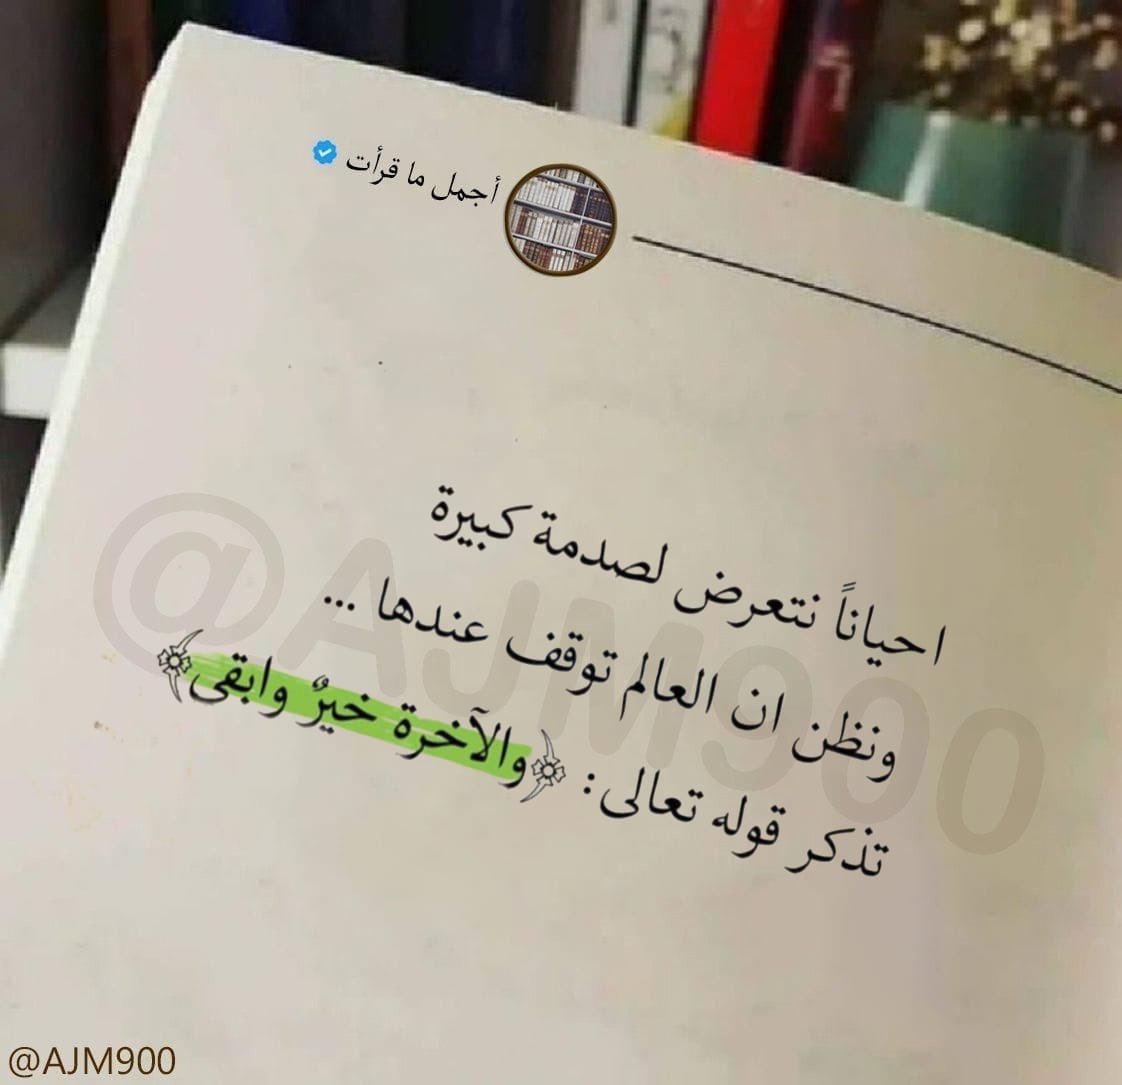 أجمل ما قرأت
احياناً نتعرض لصدمة كبيرة
ونظن ان العالم توقف عندها ...
تذكر قوله تعالى: ﴿والآخرة خيرٌ وابقى﴾
@AJM900
@AJM900